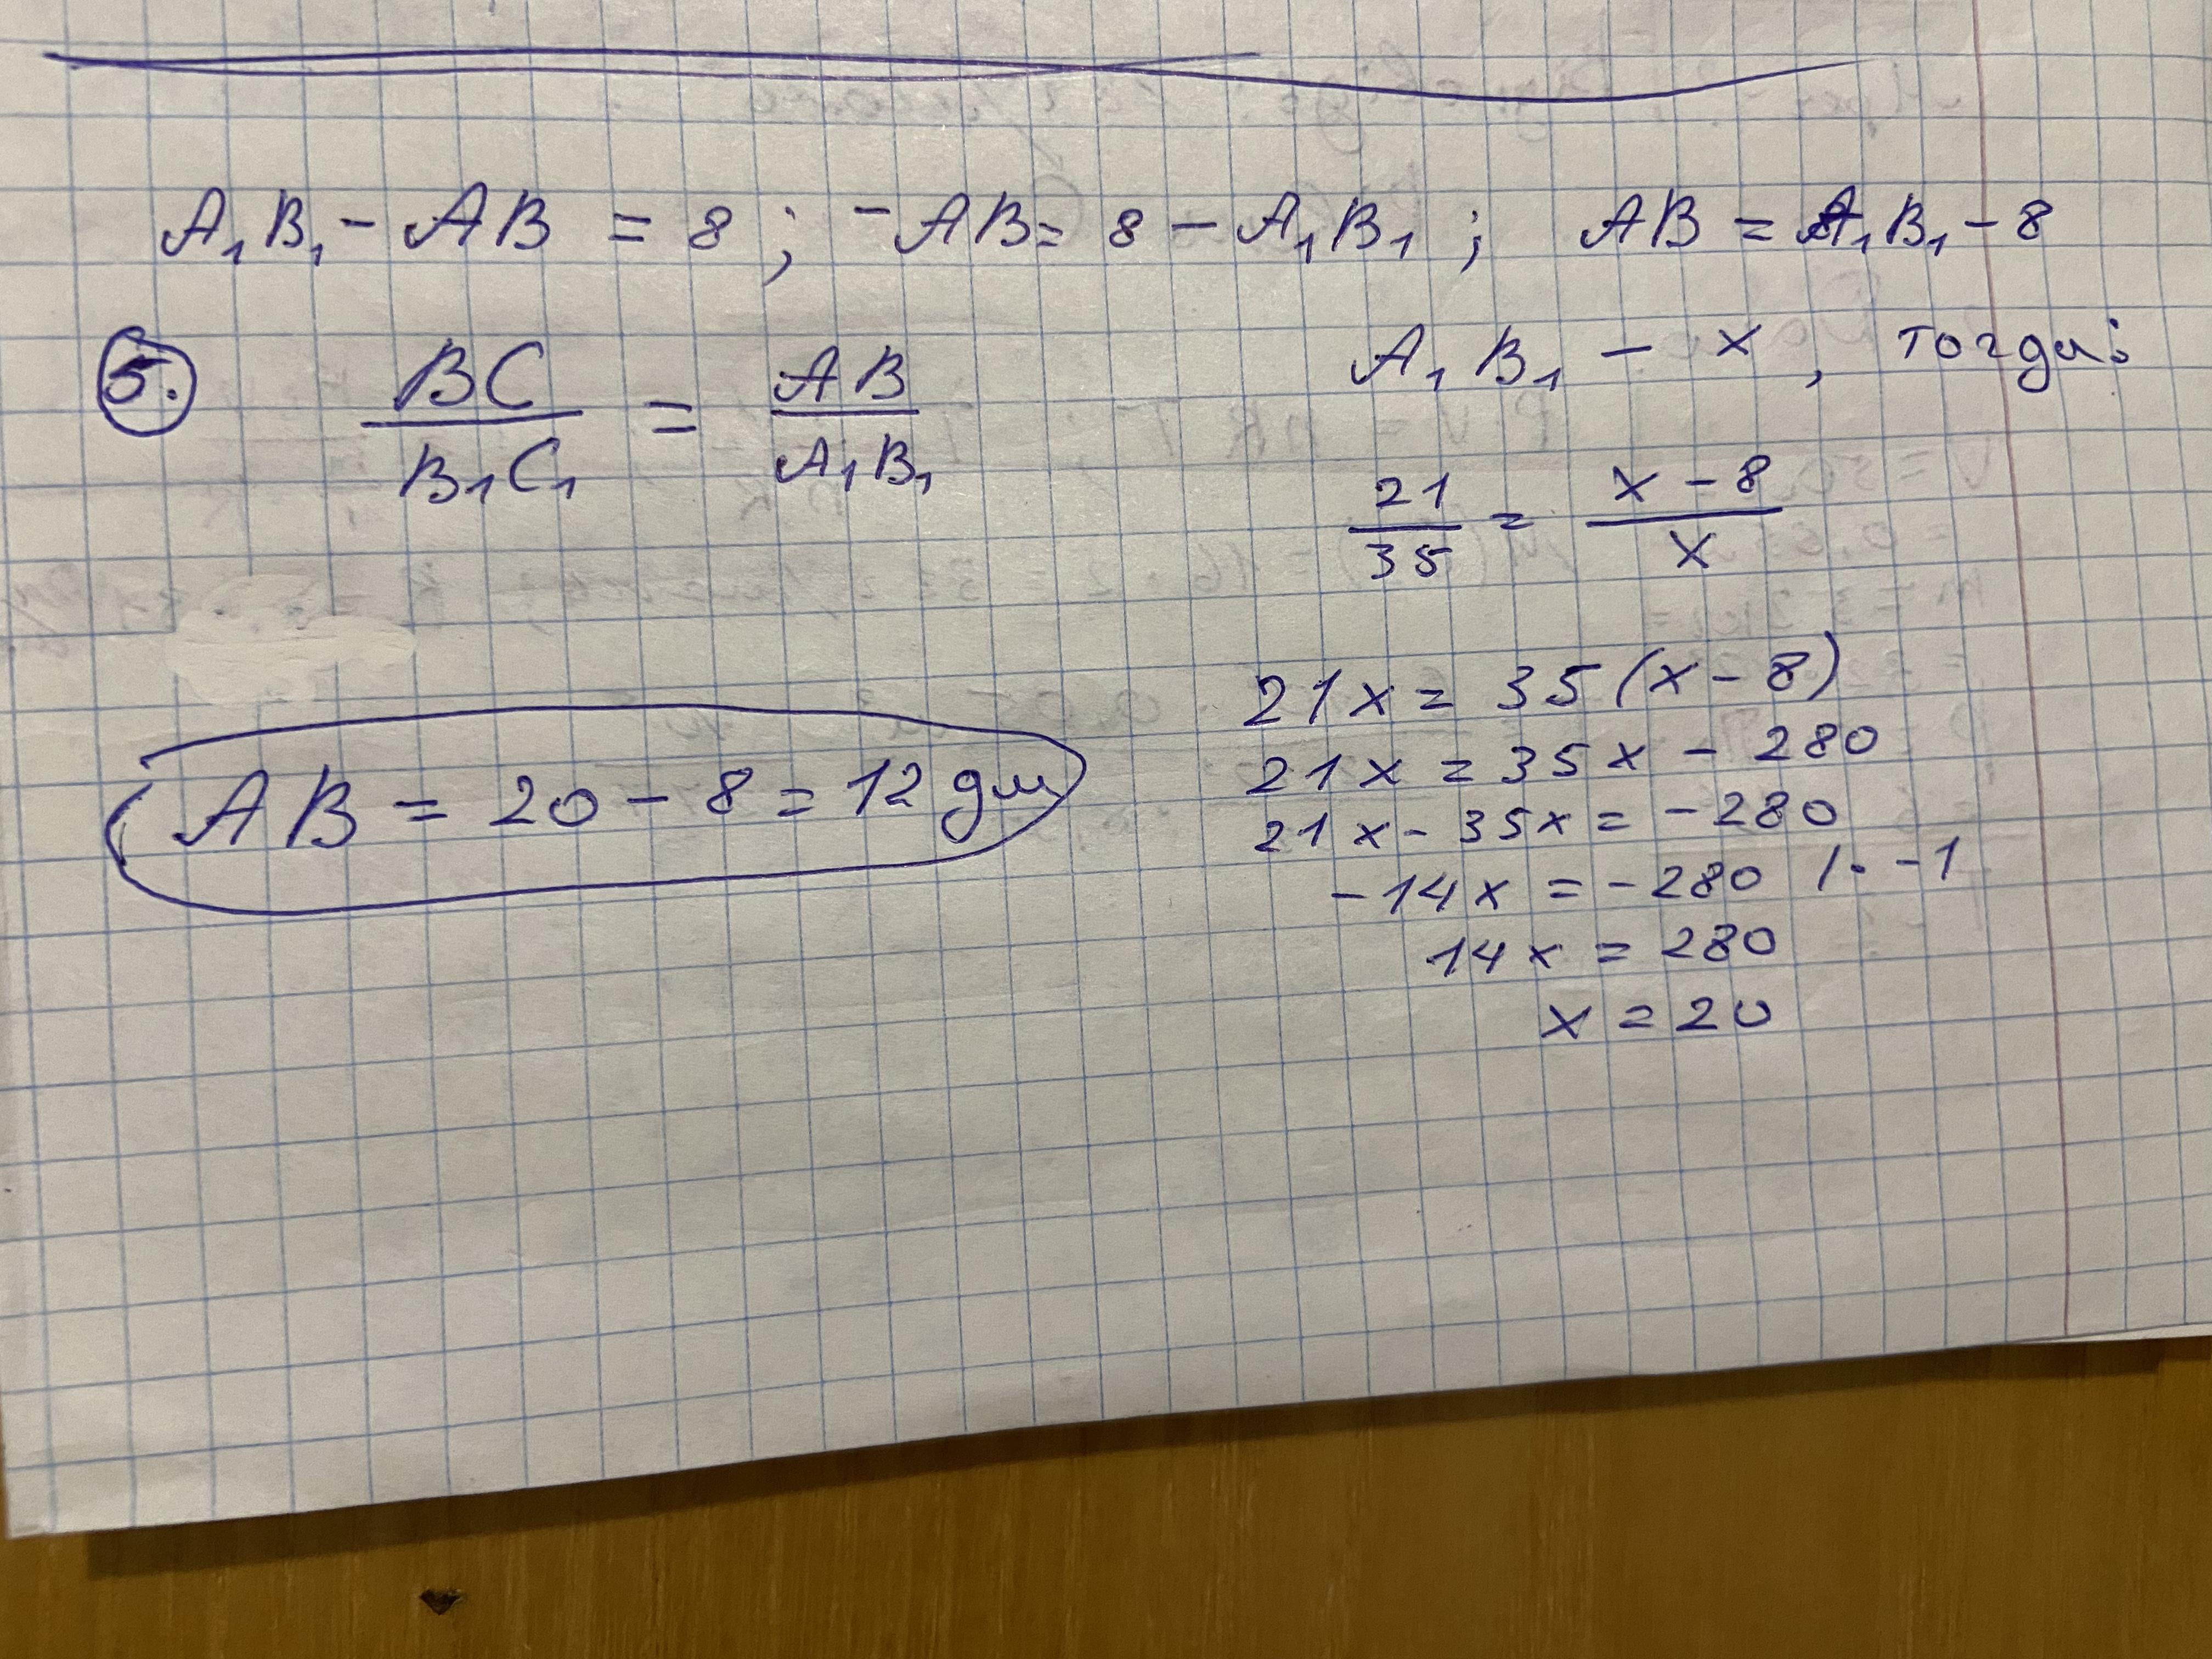 A₁B₁ - AB = 8 ; -AB = 8 - A₁B₁ ; AB = A₁B₁ - 8
5. BC/B₁C₁ = AB/A₁B₁
A₁B₁ - x, тогда:
21/35 = (x - 8)/x
21x = 35(x - 8)
21x = 35x - 280
21x - 35x = -280
-14x = -280 | · -1
14x = 280
x = 20
AB = 20 - 8 = 12 дм